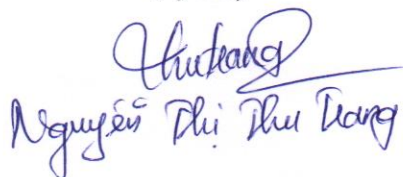 Thutrang
Nguyễn Thị Thu Trang